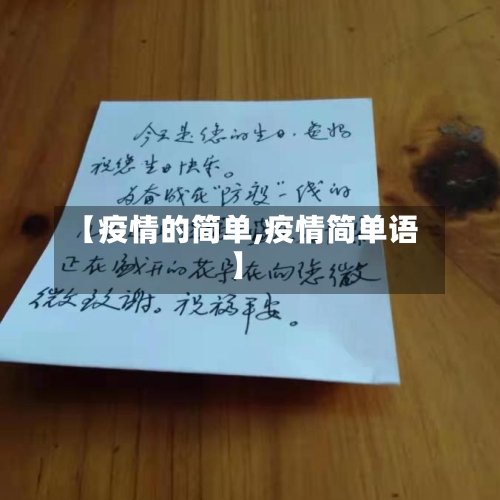 今天是您的生日,爸妈
祝您生日快乐。
为奋战在“防疫”一线的
【疫情的简单,疫情简单语
】
正在盛开的花朵在向您微
微致谢。祝福平安。